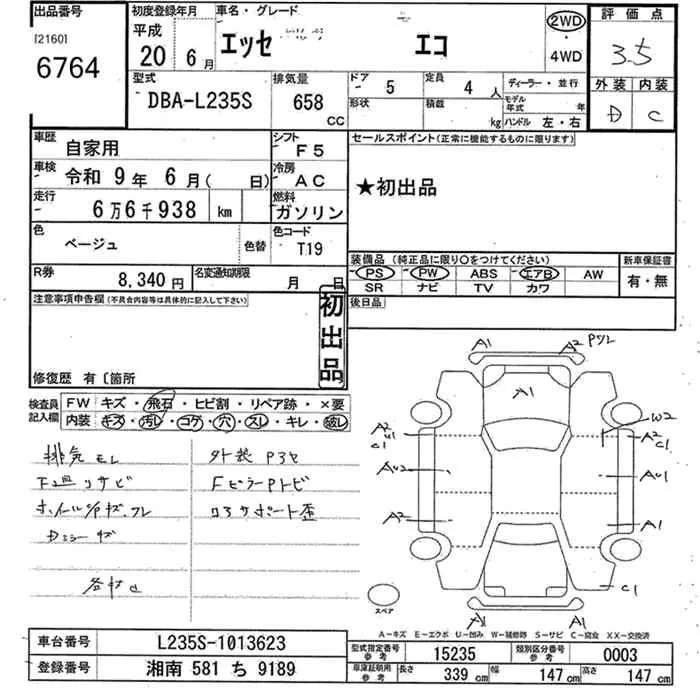 出品番号
[2160]
6764
初度登録年月
平成
20 6月
車名・グレード
エッセ エコ
2WD
・
4WD
評価点
3.5
外装 内装
D C
型式
DBA-L235S
排気量
658
CC
ドア 5
定員 4 人
形状
積載 kg
ディーラー・並行
モデル年式 年
ハンドル 左・右
車歴
自家用
シフト
F5
車検
令和 9年 6月( 日)
冷房
AC
走行
6万6千938 km
燃料
ガソリン
色
ベージュ
色替
色コード
T19
R券
8,340円
名変通知期限 月 日
セールスポイント(正常に機能するものに限ります)
★初出品
装備品(純正品に限り〇をつけてください)
PS PW ABS エアB AW
SR ナビ TV カワ
新車保証書
有・無
後日品
注意事項申告欄(不具合内容等は具体的に記入して下さい)
初出品
修復歴 有〔箇所
検査員
記入欄
FW キズ・飛石・ヒビ割・リペア跡・×要
内装 キズ・汚レ・コゲ・穴・スレ・キレ・破レ
排気モレ
外装
F下皿リサビ
FピラーPトビ
サポート歪
Dミラーキズ
A1 A2
A1
W2
A2 U1 C1
A2 C1
AU2
AU1
A2
A1
C1
A1 A1
スペア
A－キズ E－エクボ U－凹み W－補修跡 S－サビ C－腐食 XX－交換済
車台番号 L235S-1013623
登録番号 湘南 581 ち 9189
型式指定番号 参考 15235
類別区分番号 参考 0003
車庫証明用 参考 長さ 339 cm 幅 147 cm 高さ 147 cm